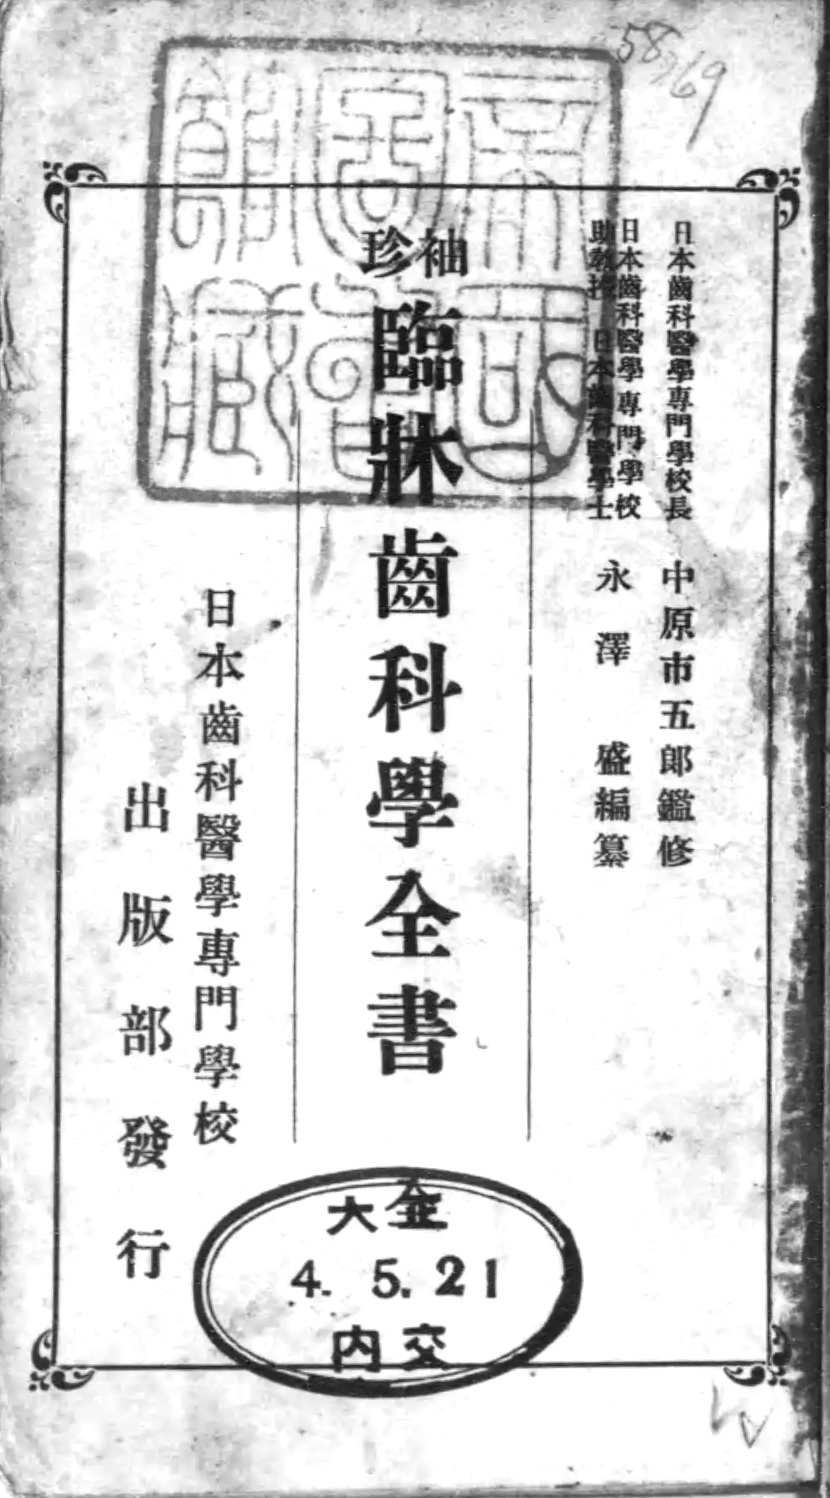 日本齒科醫學專門學校長 中原市五郎鑑修
日本齒科醫學專門學校
助教授 日本齒科醫學士 永澤 盛編纂
袖珍 臨牀齒科學全書 全
日本齒科醫學專門學校
出版部發行
帝國圖書館藏
大正
4. 5. 21
内交